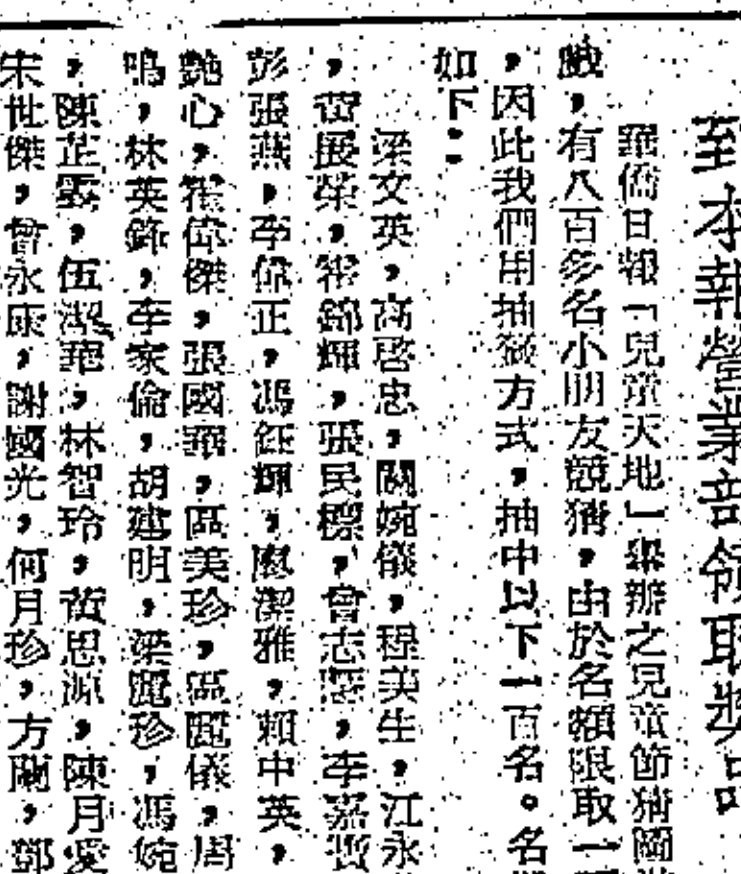 到本報營業部領取獎品
華僑日報「兒童天地」舉辦之兒童節猜圖遊
戲，有八百多名小朋友競猜，由於名額限取一百
，因此我們用抽籤方式，抽中以下一百名。名
如下：
梁文英，高啓忠，關婉儀，程美生，江永
，黃展榮，翟錦輝，張民標，曾志，李嘉
彭張燕，李偉正，馮鈺輝，潔雅，賴中英，
艷心，翟偉傑，張國華，區美珍，區麗儀，周
鳴，林英鋒，李家倫，胡建明，梁麗珍，馮婉
，陳芷雲，伍潔華，林智玲，黃思源，陳月愛
宋世傑，曾永康，謝國光，何月珍，方蘭，鄧